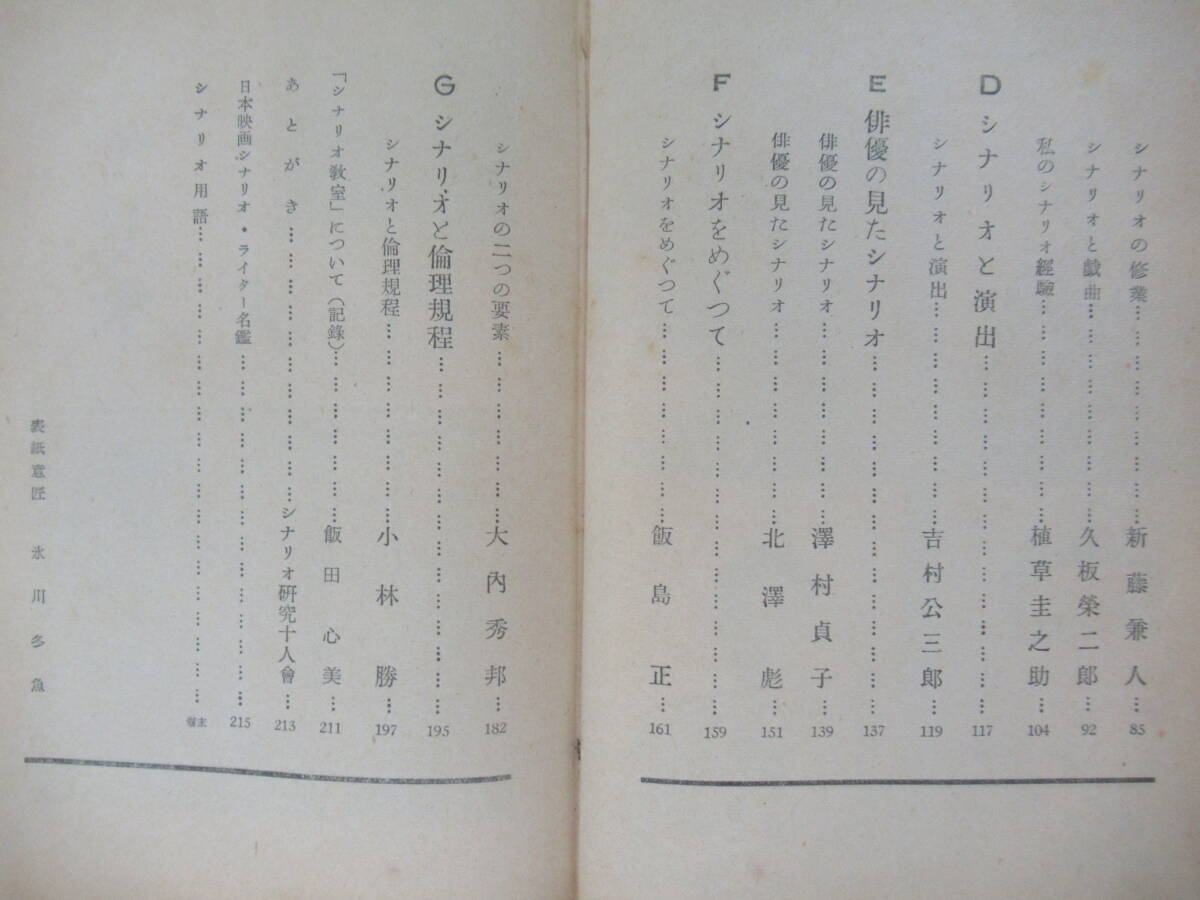 シナリオの修業…………………………新藤兼人…85
シナリオと戯曲…………………………久板榮二郎…92
私のシナリオ經驗…………………………植草圭之助…104
D シナリオと演出…………………………117
シナリオと演出…………………………吉村公三郎…119
E 俳優の見たシナリオ…………………………137
俳優の見たシナリオ…………………………澤村貞子…139
俳優の見たシナリオ…………………………北澤彪…151
F シナリオをめぐつて…………………………159
シナリオをめぐつて…………………………飯島正…161
シナリオの二つの要素…………………………大內秀邦…182
G シナリオと倫理規程…………………………195
シナリオと倫理規程…………………………小林勝…197
「シナリオ敎室」について(記錄)…………………………飯田心美…211
あとがき…………………………シナリオ硏究十人會…213
日本映画シナリオ・ライター名鑑…………………………215
シナリオ用語…………………………卷末
表紙意匠 氷川多魚